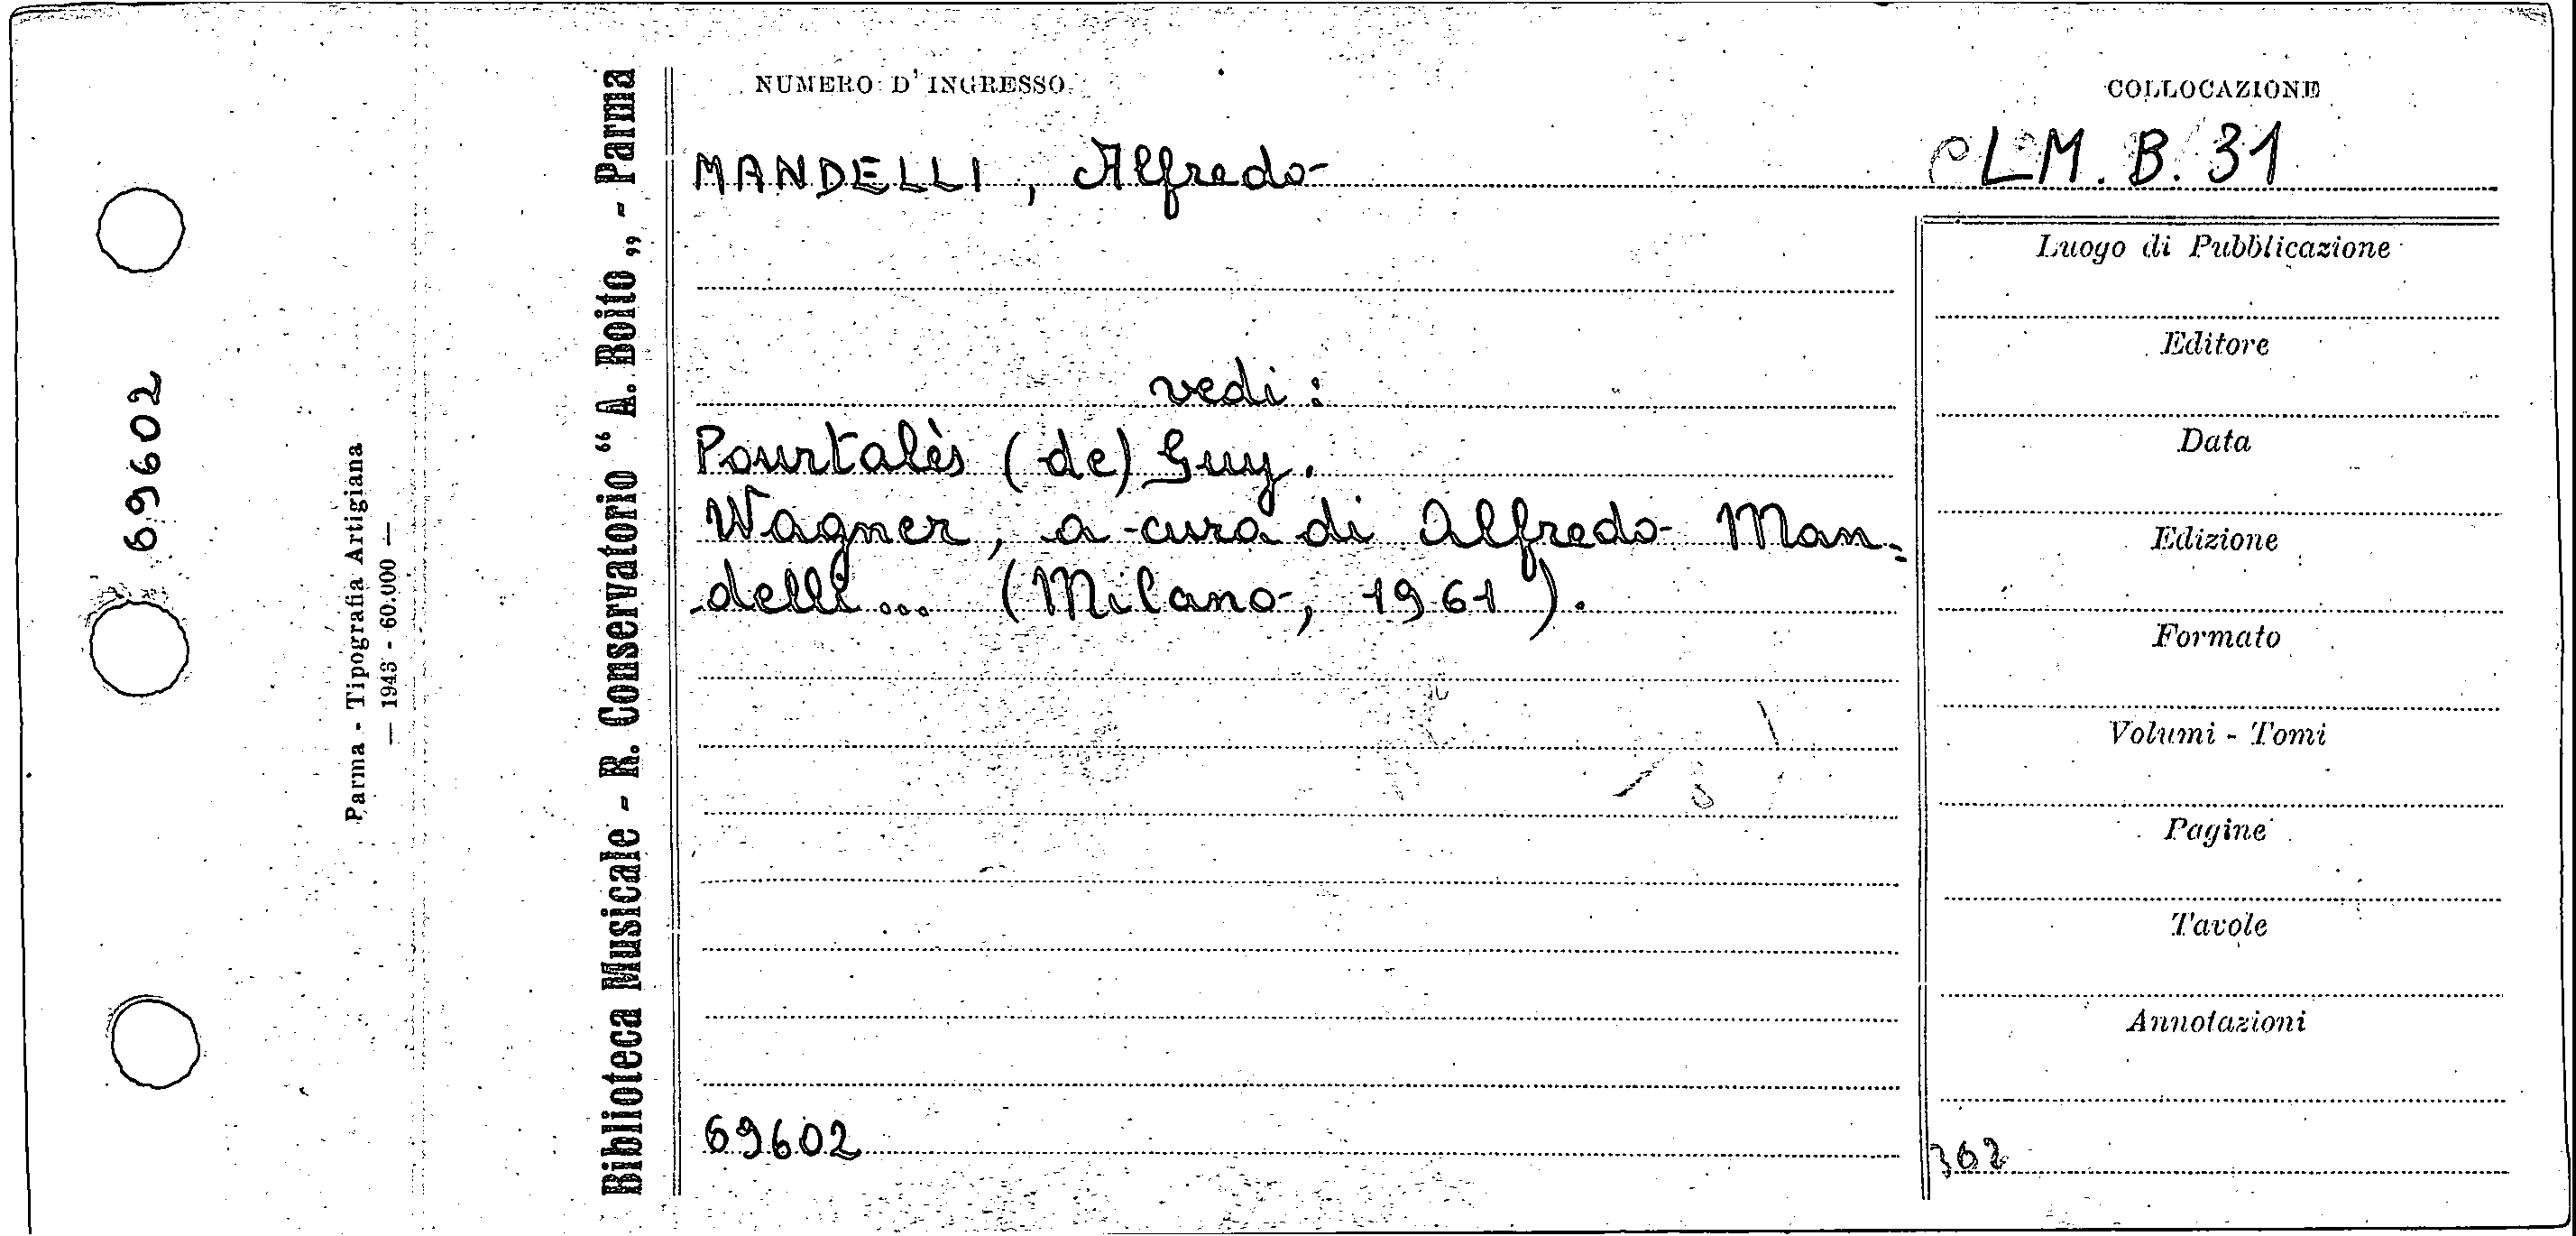 69602
Parma - Tipografia Artigiana
— 1943 - 60.000 —
Biblioteca Musicale - R. Conservatorio “ A. Boito „ - Parma
NUMERO D'INGRESSO
COLLOCAZIONE
MANDELLI, Alfredo
CLM. B. 31
vedi:
Pourtalès (de) Guy.
Wagner, a cura di Alfredo Man=
delli... (Milano, 1961).
69602
Luogo di Pubblicazione
Editore
Data
Edizione
Formato
Volumi - Tomi
Pagine
Tavole
Annotazioni
302